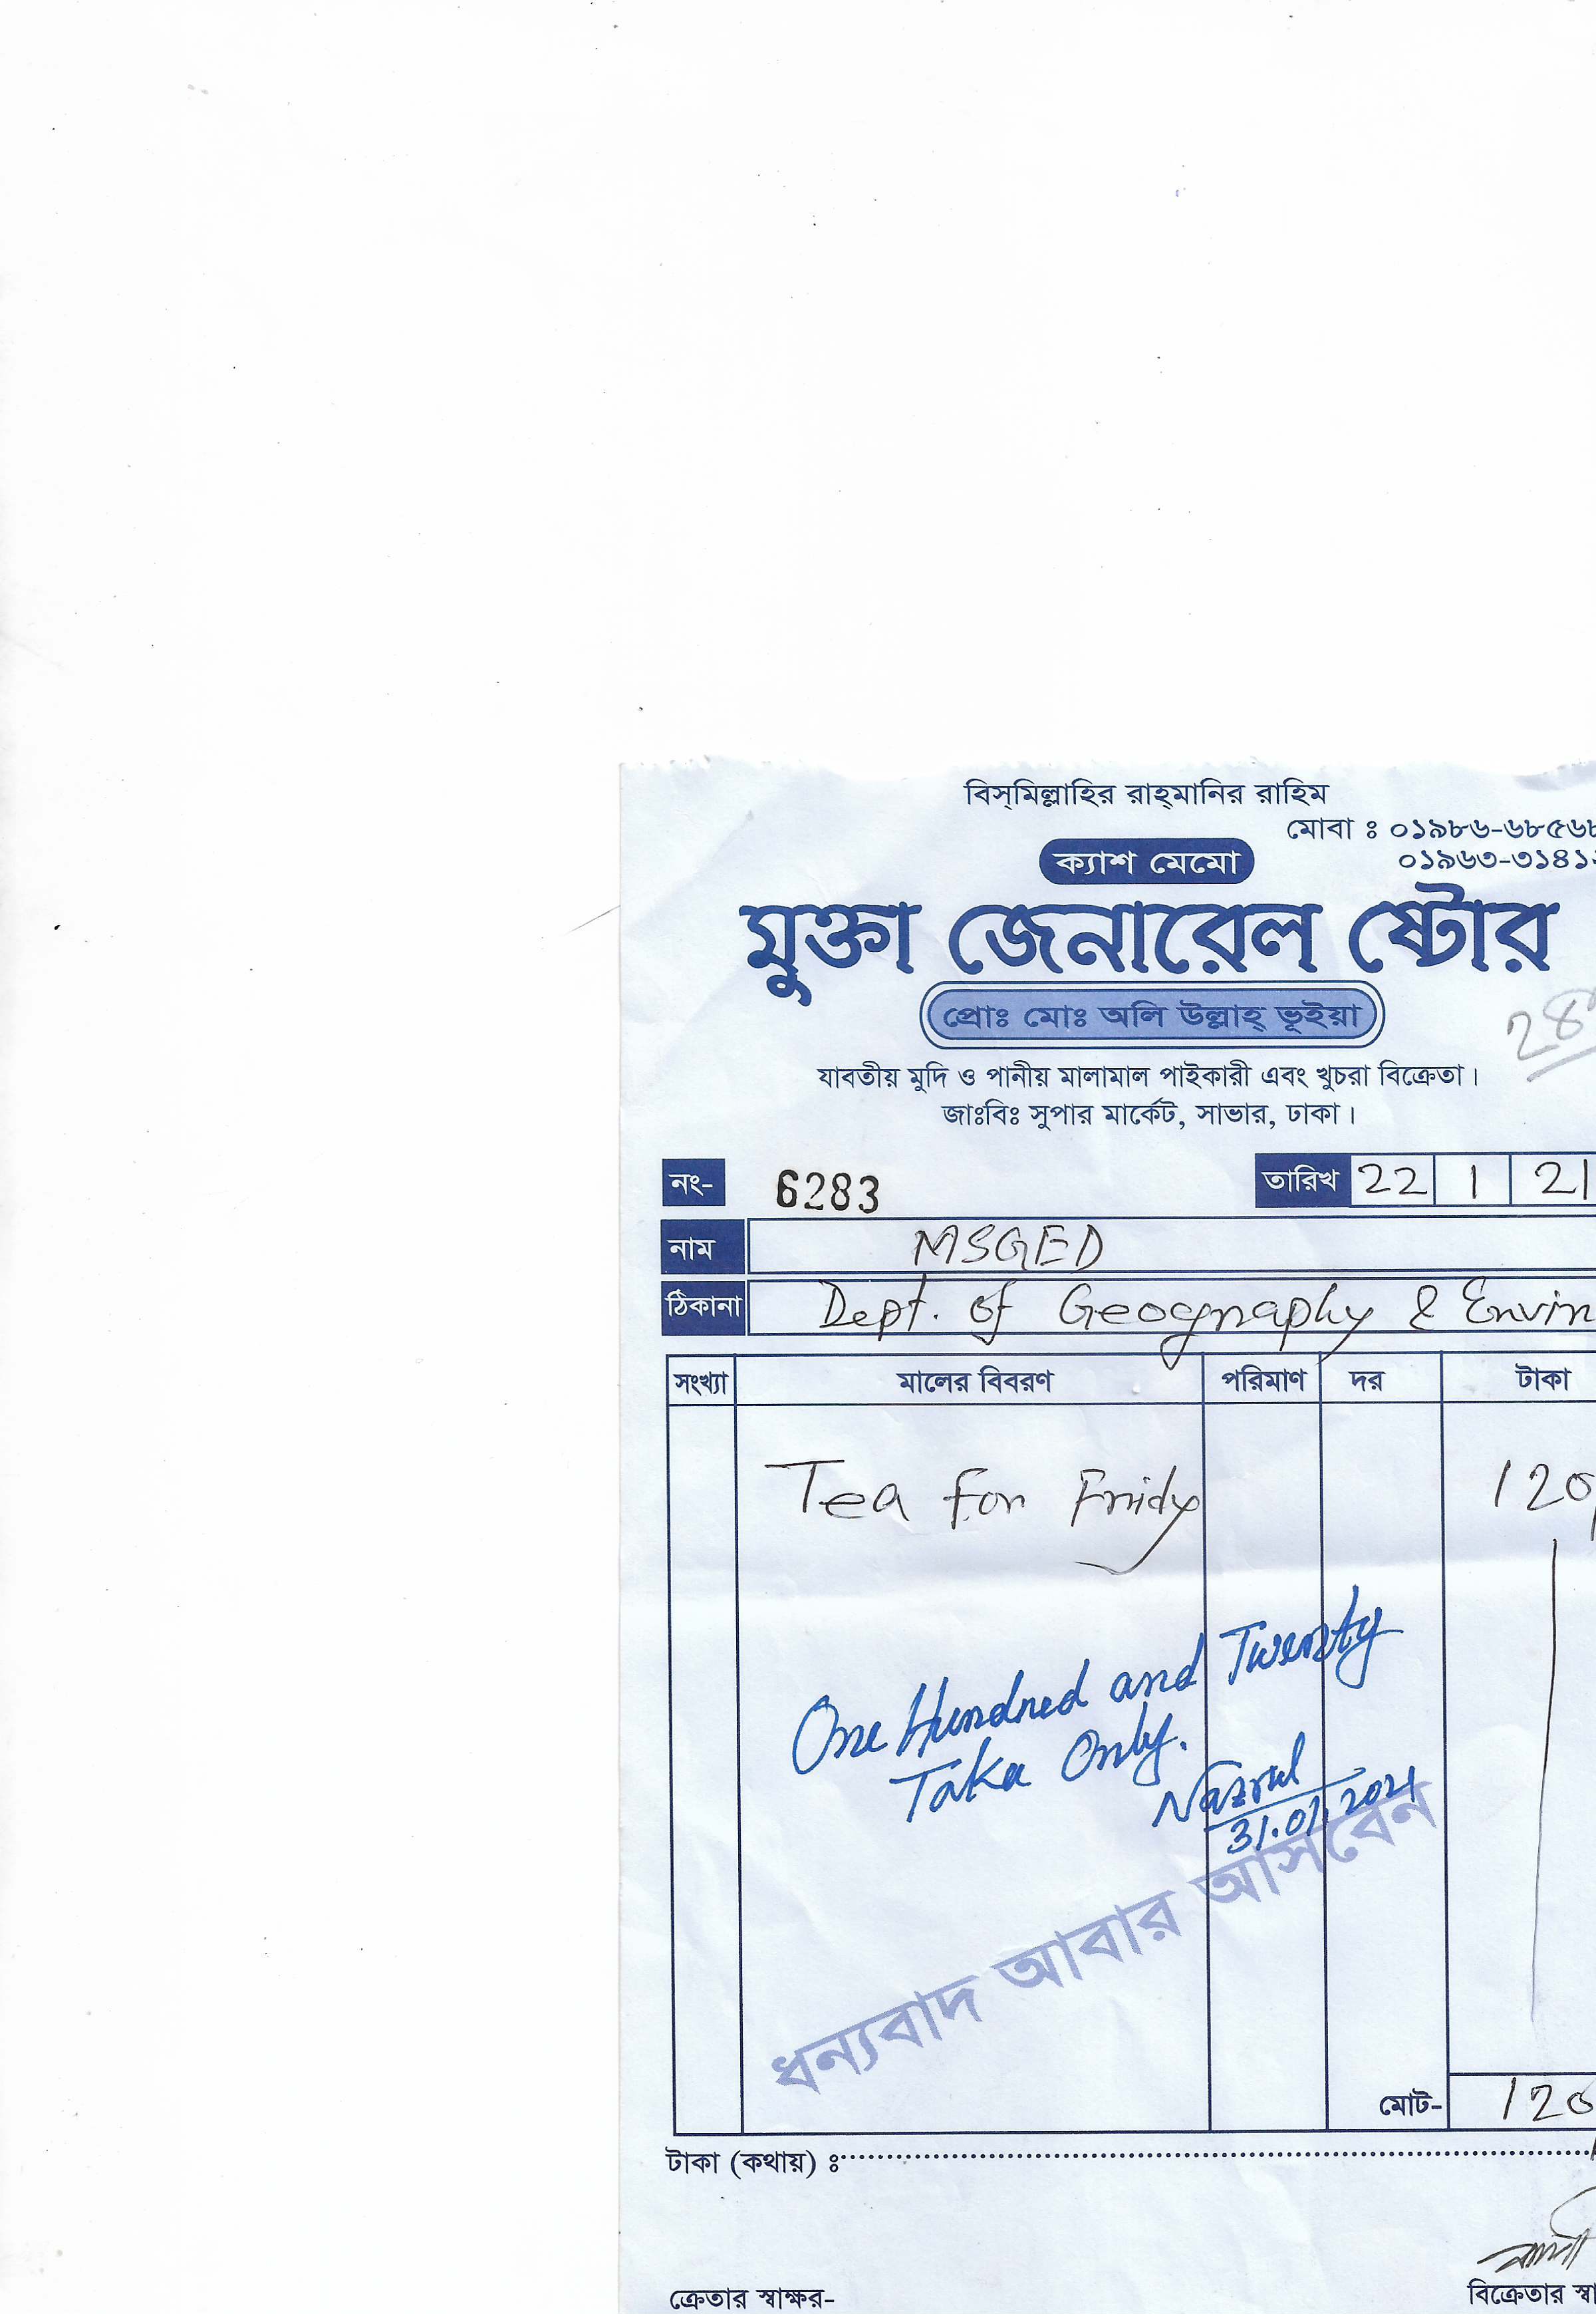 বিস্‌মিল্লাহির রাহ্‌মানির রাহিম
মোবা ঃ ০১৯৮৬-৬৮৫৬৮
ক্যাশ মেমো
০১৯৬৩-৩১৪১
মুক্তা জেনারেল ষ্টোর
প্রোঃ মোঃ অলি উল্লাহ্ ভূইয়া
28
যাবতীয় মুদি ও পানীয় মালামাল পাইকারী এবং খুচরা বিক্রেতা।
জাঃবিঃ সুপার মার্কেট, সাভার, ঢাকা।
নং- 6283 তারিখ 22 1 21
নাম MSGED
ঠিকানা Dept. of Geography & Envin
সংখ্যা মালের বিবরণ পরিমাণ দর টাকা
Tea for Fridy 120
One Hundred and Twenty
Taka Only.
Nazrul
31.01.2021
ধন্যবাদ আবার আসবেন
মোট- 120
টাকা (কথায়) ঃ
ক্রেতার স্বাক্ষর- বিক্রেতার স্বা